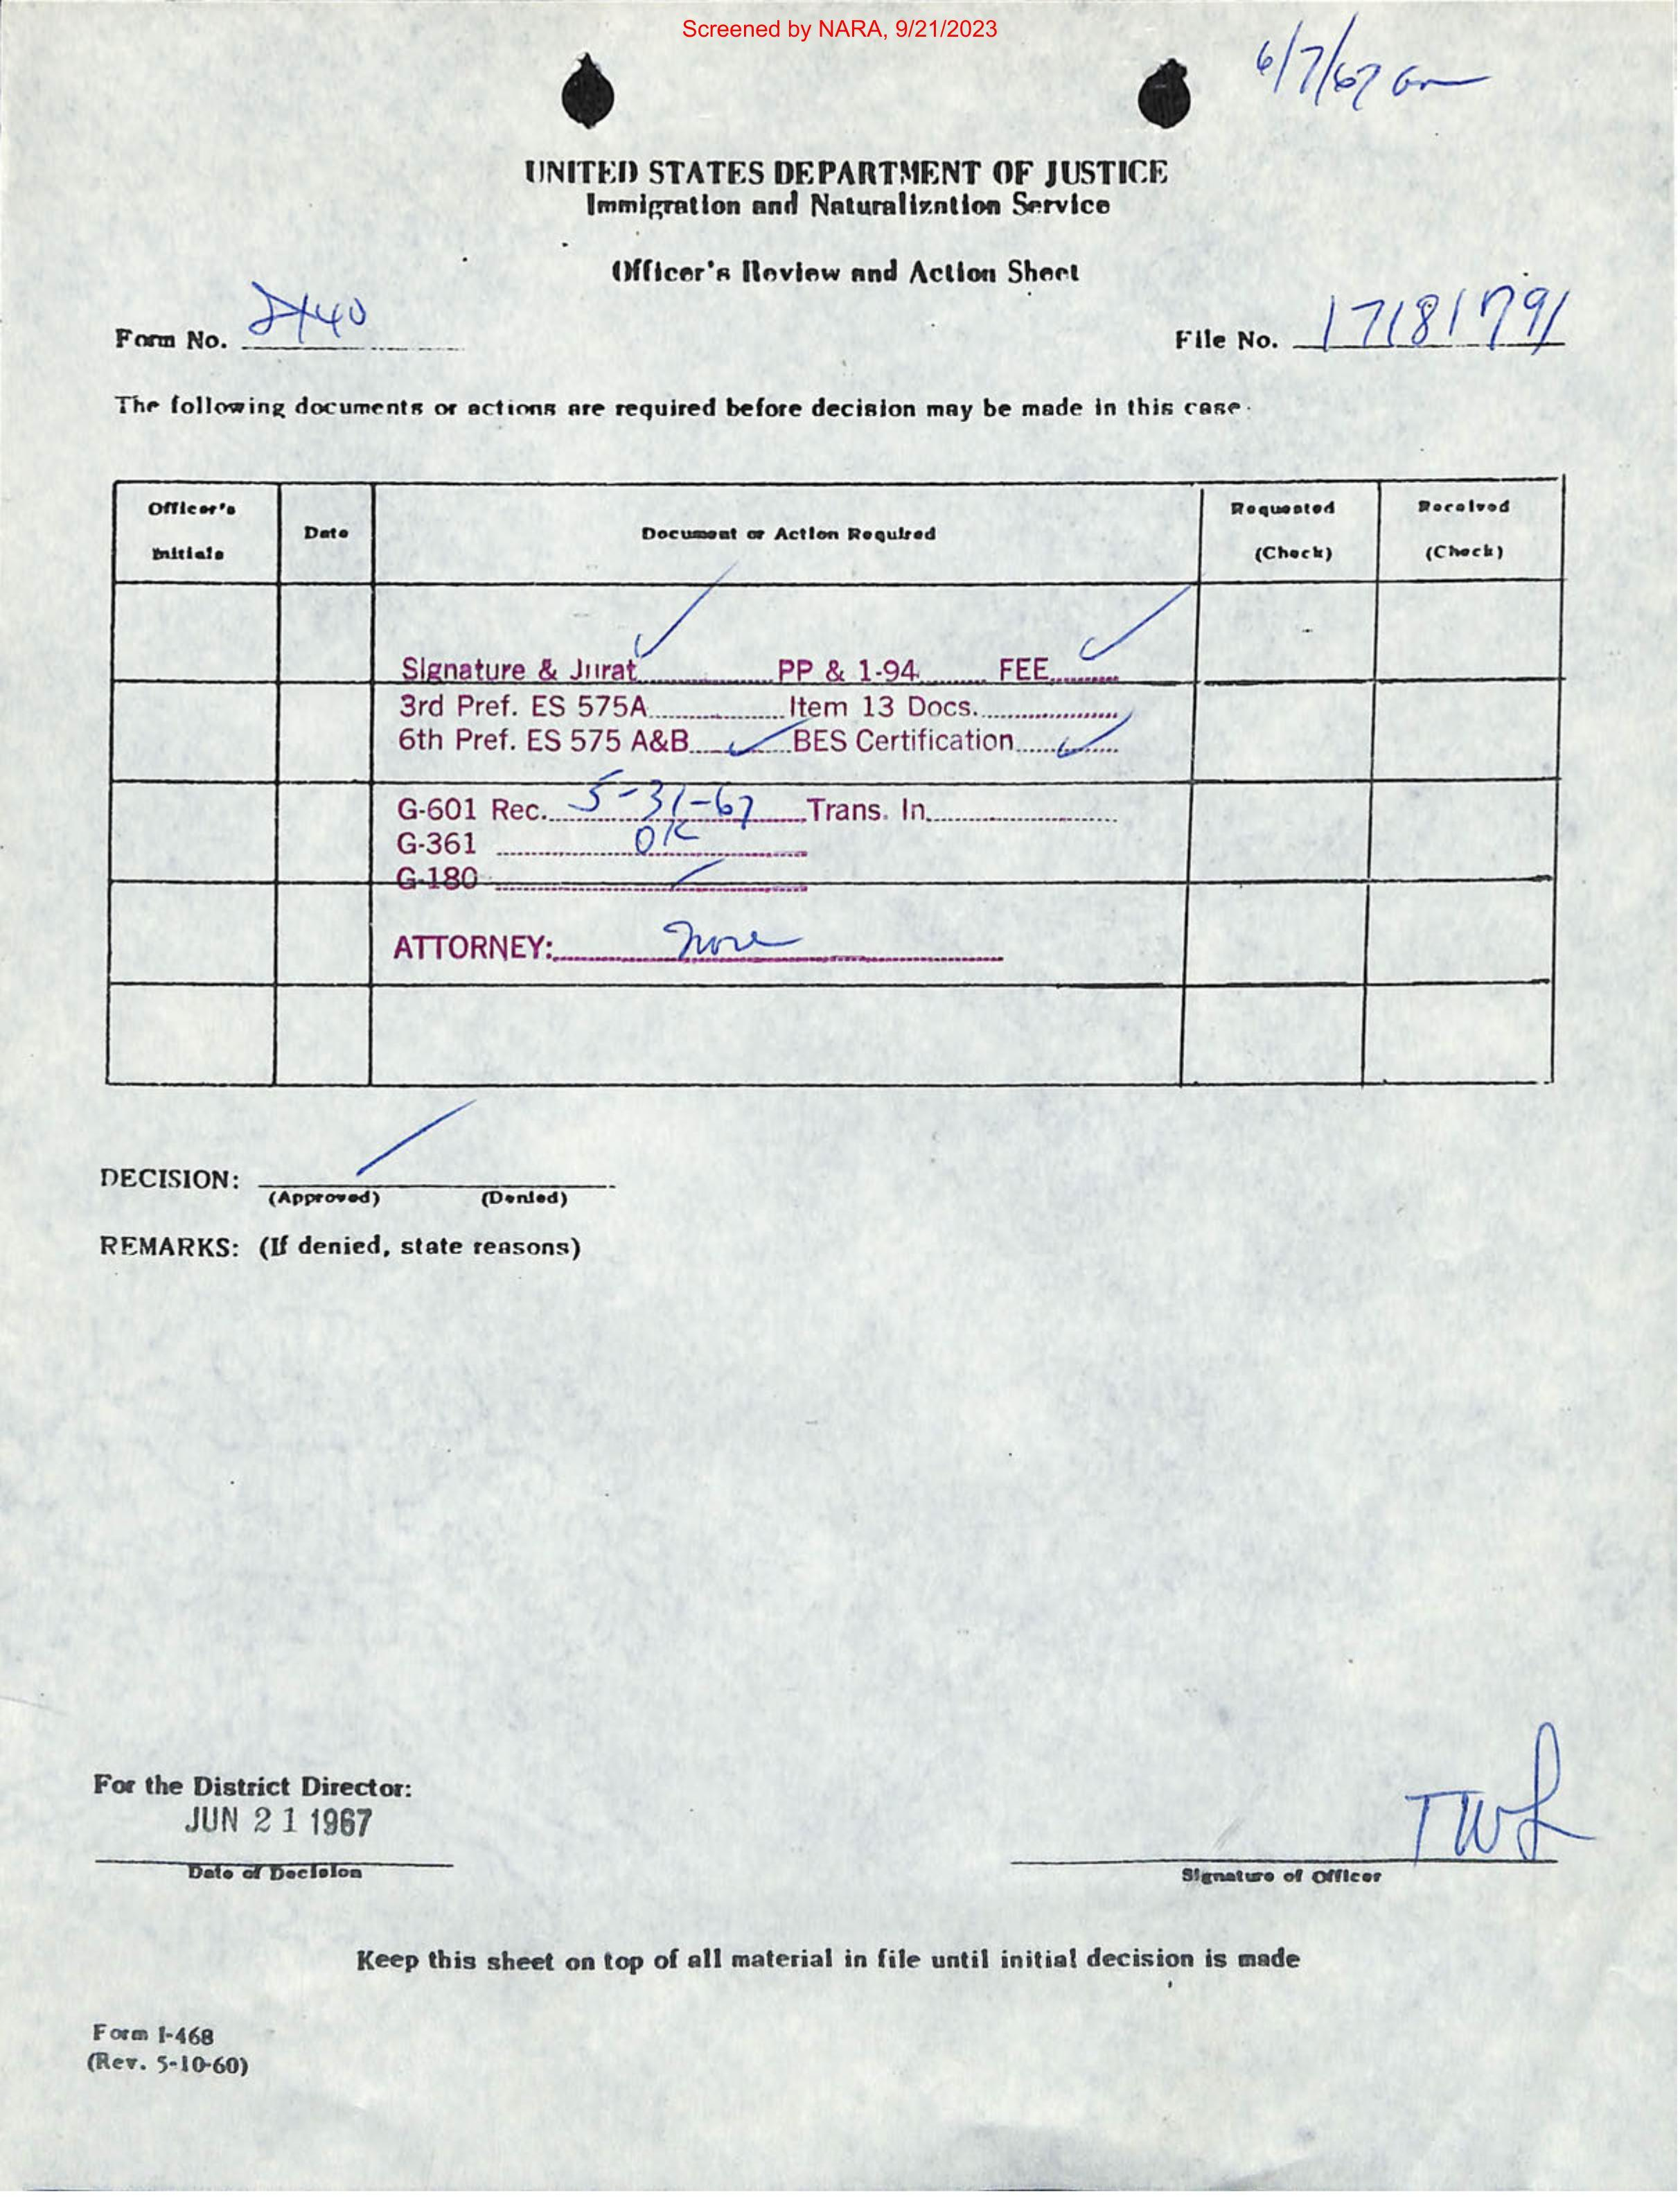 Screened by NARA, 9/21/2023
6/7/67
UNITED STATES DEPARTMENT OF JUSTICE
Immigration and Naturalization Service
Officer's Review and Action Sheet
Form No. I140 File No. 17181791
The following documents or actions are required before decision may be made in this case.
Officer's Initials Date Document or Action Required Requested (Check) Received (Check)
Signature & Jurat ✓ PP & 1-94 FEE ✓
3rd Pref. ES 575A Item 13 Docs.
6th Pref. ES 575 A&B ✓ BES Certification ✓
G-601 Rec. 5-31-67 Trans. In
G-361 OK
G-180
ATTORNEY: None
DECISION:
(Approved) (Denied)
REMARKS: (If denied, state reasons)
For the District Director:
JUN 21 1967
TWL
Date of Decision Signature of Officer
Keep this sheet on top of all material in file until initial decision is made
Form I-468
(Rev. 5-10-60)